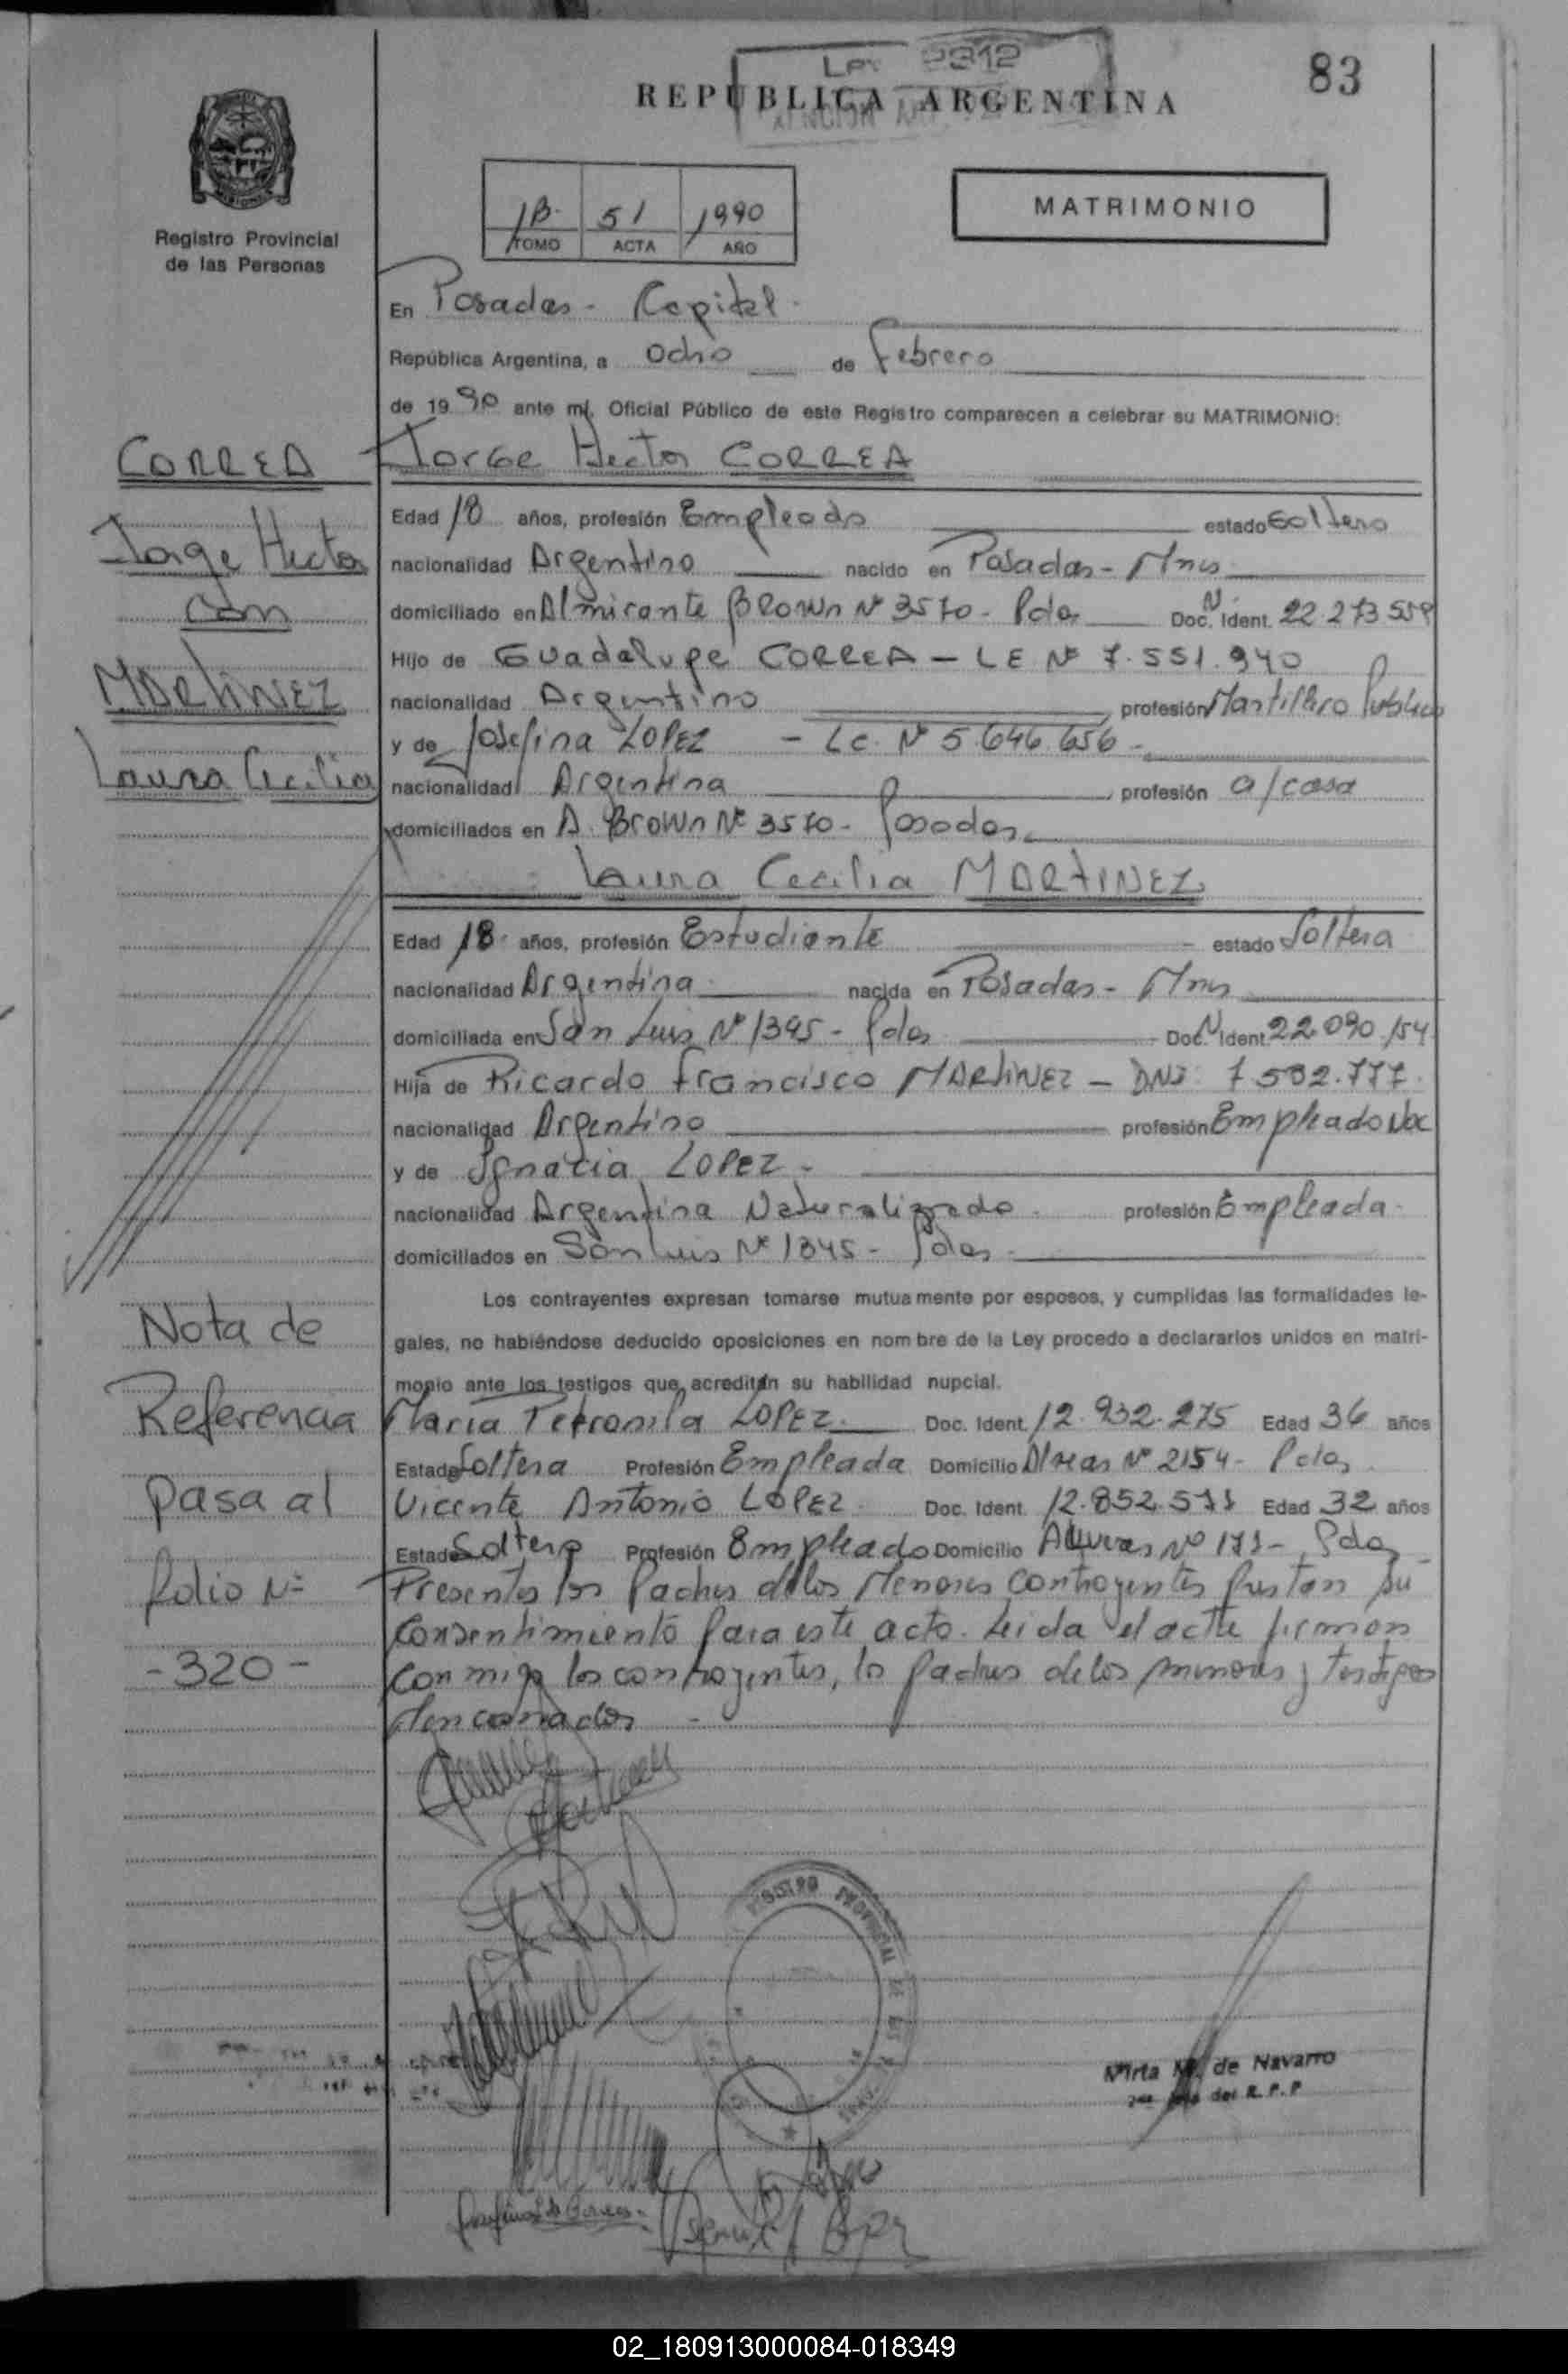 83
Ley 2312
REPUBLICA ARGENTINA
Registro Provincial
de las Personas
1B. 51 1990
TOMO ACTA AÑO
MATRIMONIO
En Posadas - Capital.
República Argentina, a ocho de febrero
de 1990 ante mí, Oficial Público de este Registro comparecen a celebrar su MATRIMONIO:
CORREA
Jorge Hector
con
MARTINEZ
Laura Cecilia
Jorge Hector CORREA
Edad 18 años, profesión Empleado estado Soltero
nacionalidad Argentino nacido en Posadas - Mnes
domiciliado en Almirante BROWN Nº 3570 - Pdas Doc. N. Ident. 22.273.559
Hijo de Guadalupe CORREA - LE Nº 7.551.940
nacionalidad Argentino profesión Martillero Publico
y de Josefina LOPEZ - Lc. Nº 5.646.656 -
nacionalidad Argentina profesión a/casa
domiciliados en A. BROWN Nº 3570 - Posadas
Laura Cecilia MARTINEZ
Edad 18 años, profesión Estudiante estado Soltera
nacionalidad Argentina nacida en Posadas - Mnes
domiciliada en San Luis Nº 1345 - Pdas Doc. N Ident. 22.090.154
Hija de Ricardo Francisco MARTINEZ - DNI: 7.592.777.
nacionalidad Argentino profesión Empleado Nac
y de Ignacia LOPEZ -
nacionalidad Argentina Naturalizada profesión Empleada
domiciliados en San Luis Nº 1345 - Pdas
Los contrayentes expresan tomarse mutuamente por esposos, y cumplidas las formalidades le-
gales, no habiéndose deducido oposiciones en nombre de la Ley procedo a declararlos unidos en matri-
monio ante los testigos que acreditán su habilidad nupcial.
Nota de
Referencia
pasa al
folio Nº
-320-
Maria Petronila LOPEZ. Doc. Ident. 12.932.275 Edad 36 años
Estado Soltera Profesión Empleada Domicilio Nº 2154 - Pdas
Vicente Antonio LOPEZ Doc. Ident. 12.852.511 Edad 32 años
Estado Soltero Profesión Empleado Domicilio Nº 171 - Pdas
Presentes los Padres de los Menores contrayentes prestan su
consentimiento para este acto. Leida el acta firman
conmigo los contrayentes, los padres de los menores y testigos
Mencionados -
REGISTRO PROVINCIAL DE LAS
Mirta M. de Navarro
del R.P.P
02_180913000084-018349